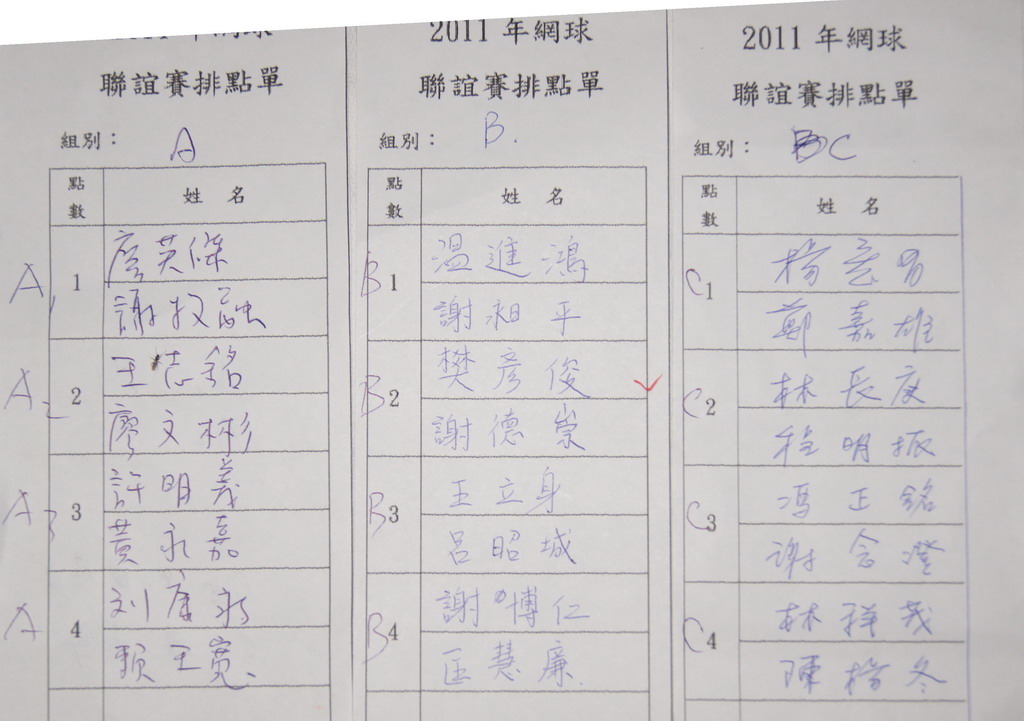 2011 年網球
聯誼賽排點單
組別： A
點數 姓 名
A1 1 廖英傑
謝牧融
A2 2 王志銘
廖文彬
A3 3 許明義
黃永嘉
A 4 刘康
王寬
2011 年網球
聯誼賽排點單
組別： B.
點數 姓 名
B1 溫進鴻
謝昶平
B2 樊彥俊
謝德崇
B3 王立身
呂昭城
B4 謝博仁
匡慧廉
2011 年網球
聯誼賽排點單
組別： C
點數 姓 名
C1 楊
鄭嘉雄
C2 林長度
程明振
C3 馮正銘
谢念澄
C4 林祥茂
陳楊冬